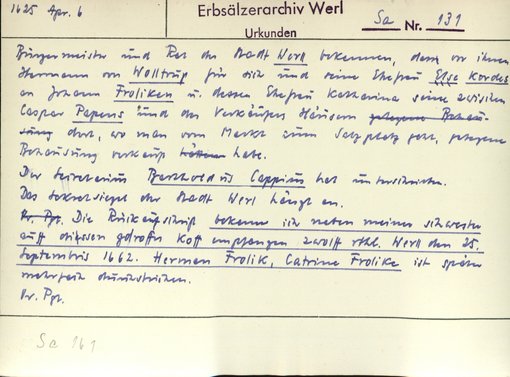 1625 Apr. 6
Erbsälzerarchiv Werl
Urkunden
Sa Nr. 131
Bürgermeister und Rat der Stadt Werl bekennen, dass vor ihnen
Hermann von Wolltrup für sich und seine Ehefrau Else Kordes
an Johann Froliken u. dessen Ehefrau Katharina seine zwischen
Caspar Papens und des Verkäufers Häusern gelegene Behau-
sung dort, wo man vom Markt zum Salzplatz geht, gelegene
Behausung verkauft habe.
Der Secretarius Bertholdus Cappius hat unterschrieben.
Das Sekretsiegel der Stadt Werl hängt an.
Or. Pgt. Die Rückaufschrift bekenne ich neben meiner schwester
auff diessen Koff empfangen zwolff rthl. Werll den 25.
Septembris 1662. Herman Frolik, Catrine Frolike ist später
mehrfach durchstrichen.
Or. Pgt.
Sa 161